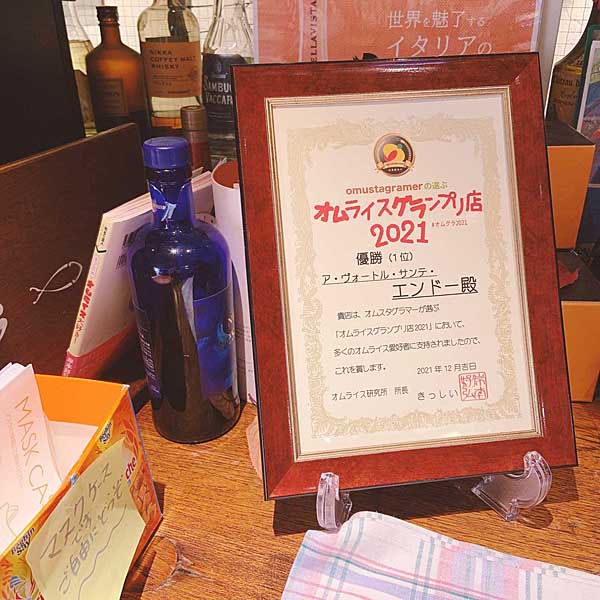 世界を魅了する
イタリアの
BELLAVISTA
NIKKA
COFFEY MALT
WHISKY
SAMBUCA
VACCARI
omustagramerの選ぶ
オムライスグランプリ店
2021
#オムグラ2021
優勝（1位）
ア・ヴォートル・サンテ・
エンドー殿
貴店は、オムスタグラマーが選ぶ
「オムライスグランプリ店2021」において、
多くのオムライス愛好者に支持されましたので、
これを賞します。
2021年12月吉日
オムライス研究所 所長 きっしい
MASK CA
マスクケース
です
ご自由にどうぞ